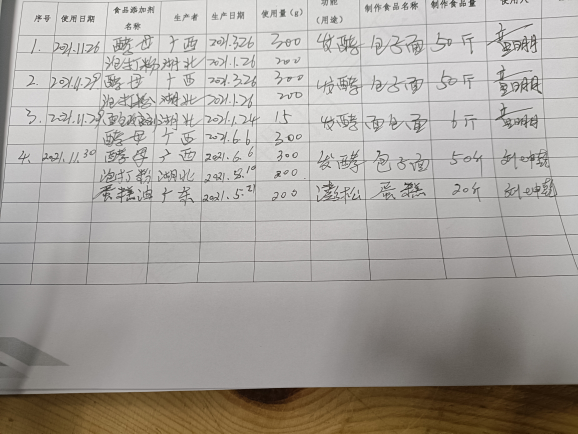 序号 使用日期 食品添加剂名称 生产者 生产日期 使用量（g） 功能（用途） 制作食品名称 制作食品量 使用人
1. 2021.11.26 酵母 广西 2021.3.26 300 发酵 包子面 50斤
泡打粉 湖北 2021.1.26 200
2. 2021.11.29 酵母 广西 2021.3.26 300 发酵 包子面 50斤
泡打粉 湖北 2021.1.26 200
3. 2021.11.29 湖北 2021.1.24 15 发酵 面包面 6斤
酵母 广西 2021.6.6 300
4. 2021.11.30 酵母 广西 2021.6.6 300 发酵 包子面 50斤
泡打粉 湖北 2021.5.10 200
蛋糕油 广东 2021.5.21 200 澎松 蛋糕 20斤